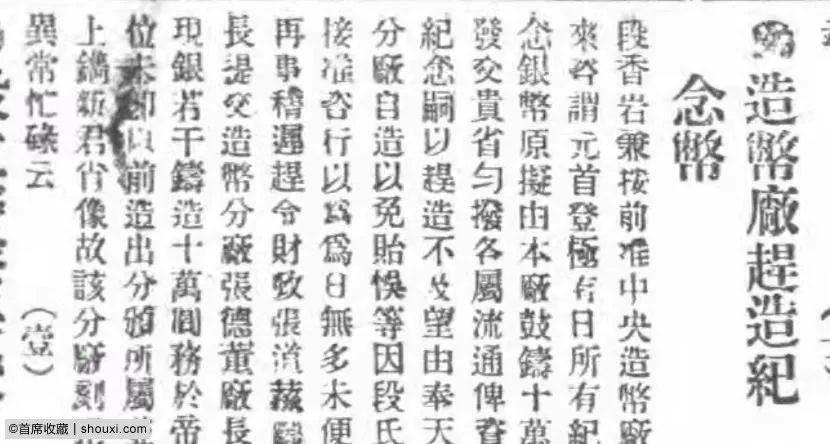 造幣廠趕造紀
念幣
段香岩兼按前准中央造幣廠
來咨謂元首登極有日所有紀
念銀幣原擬由本廠鼓鑄十萬
發交貴省勻撥各屬流通俾資
紀念嗣以趕造不及望由奉天
分廠自造以免貽悞等因段氏
接准咨行以爲爲日無多未便
再事稽遲趕令財政張道
長提交造幣分廠張德董廠長
現銀若干鑄造十萬圓務於帝
位未卽以前造出分頒所屬
上鐫新君肖像故該分廠刻
異常忙碌云 (壹)
©首席收藏 | shouxi.com